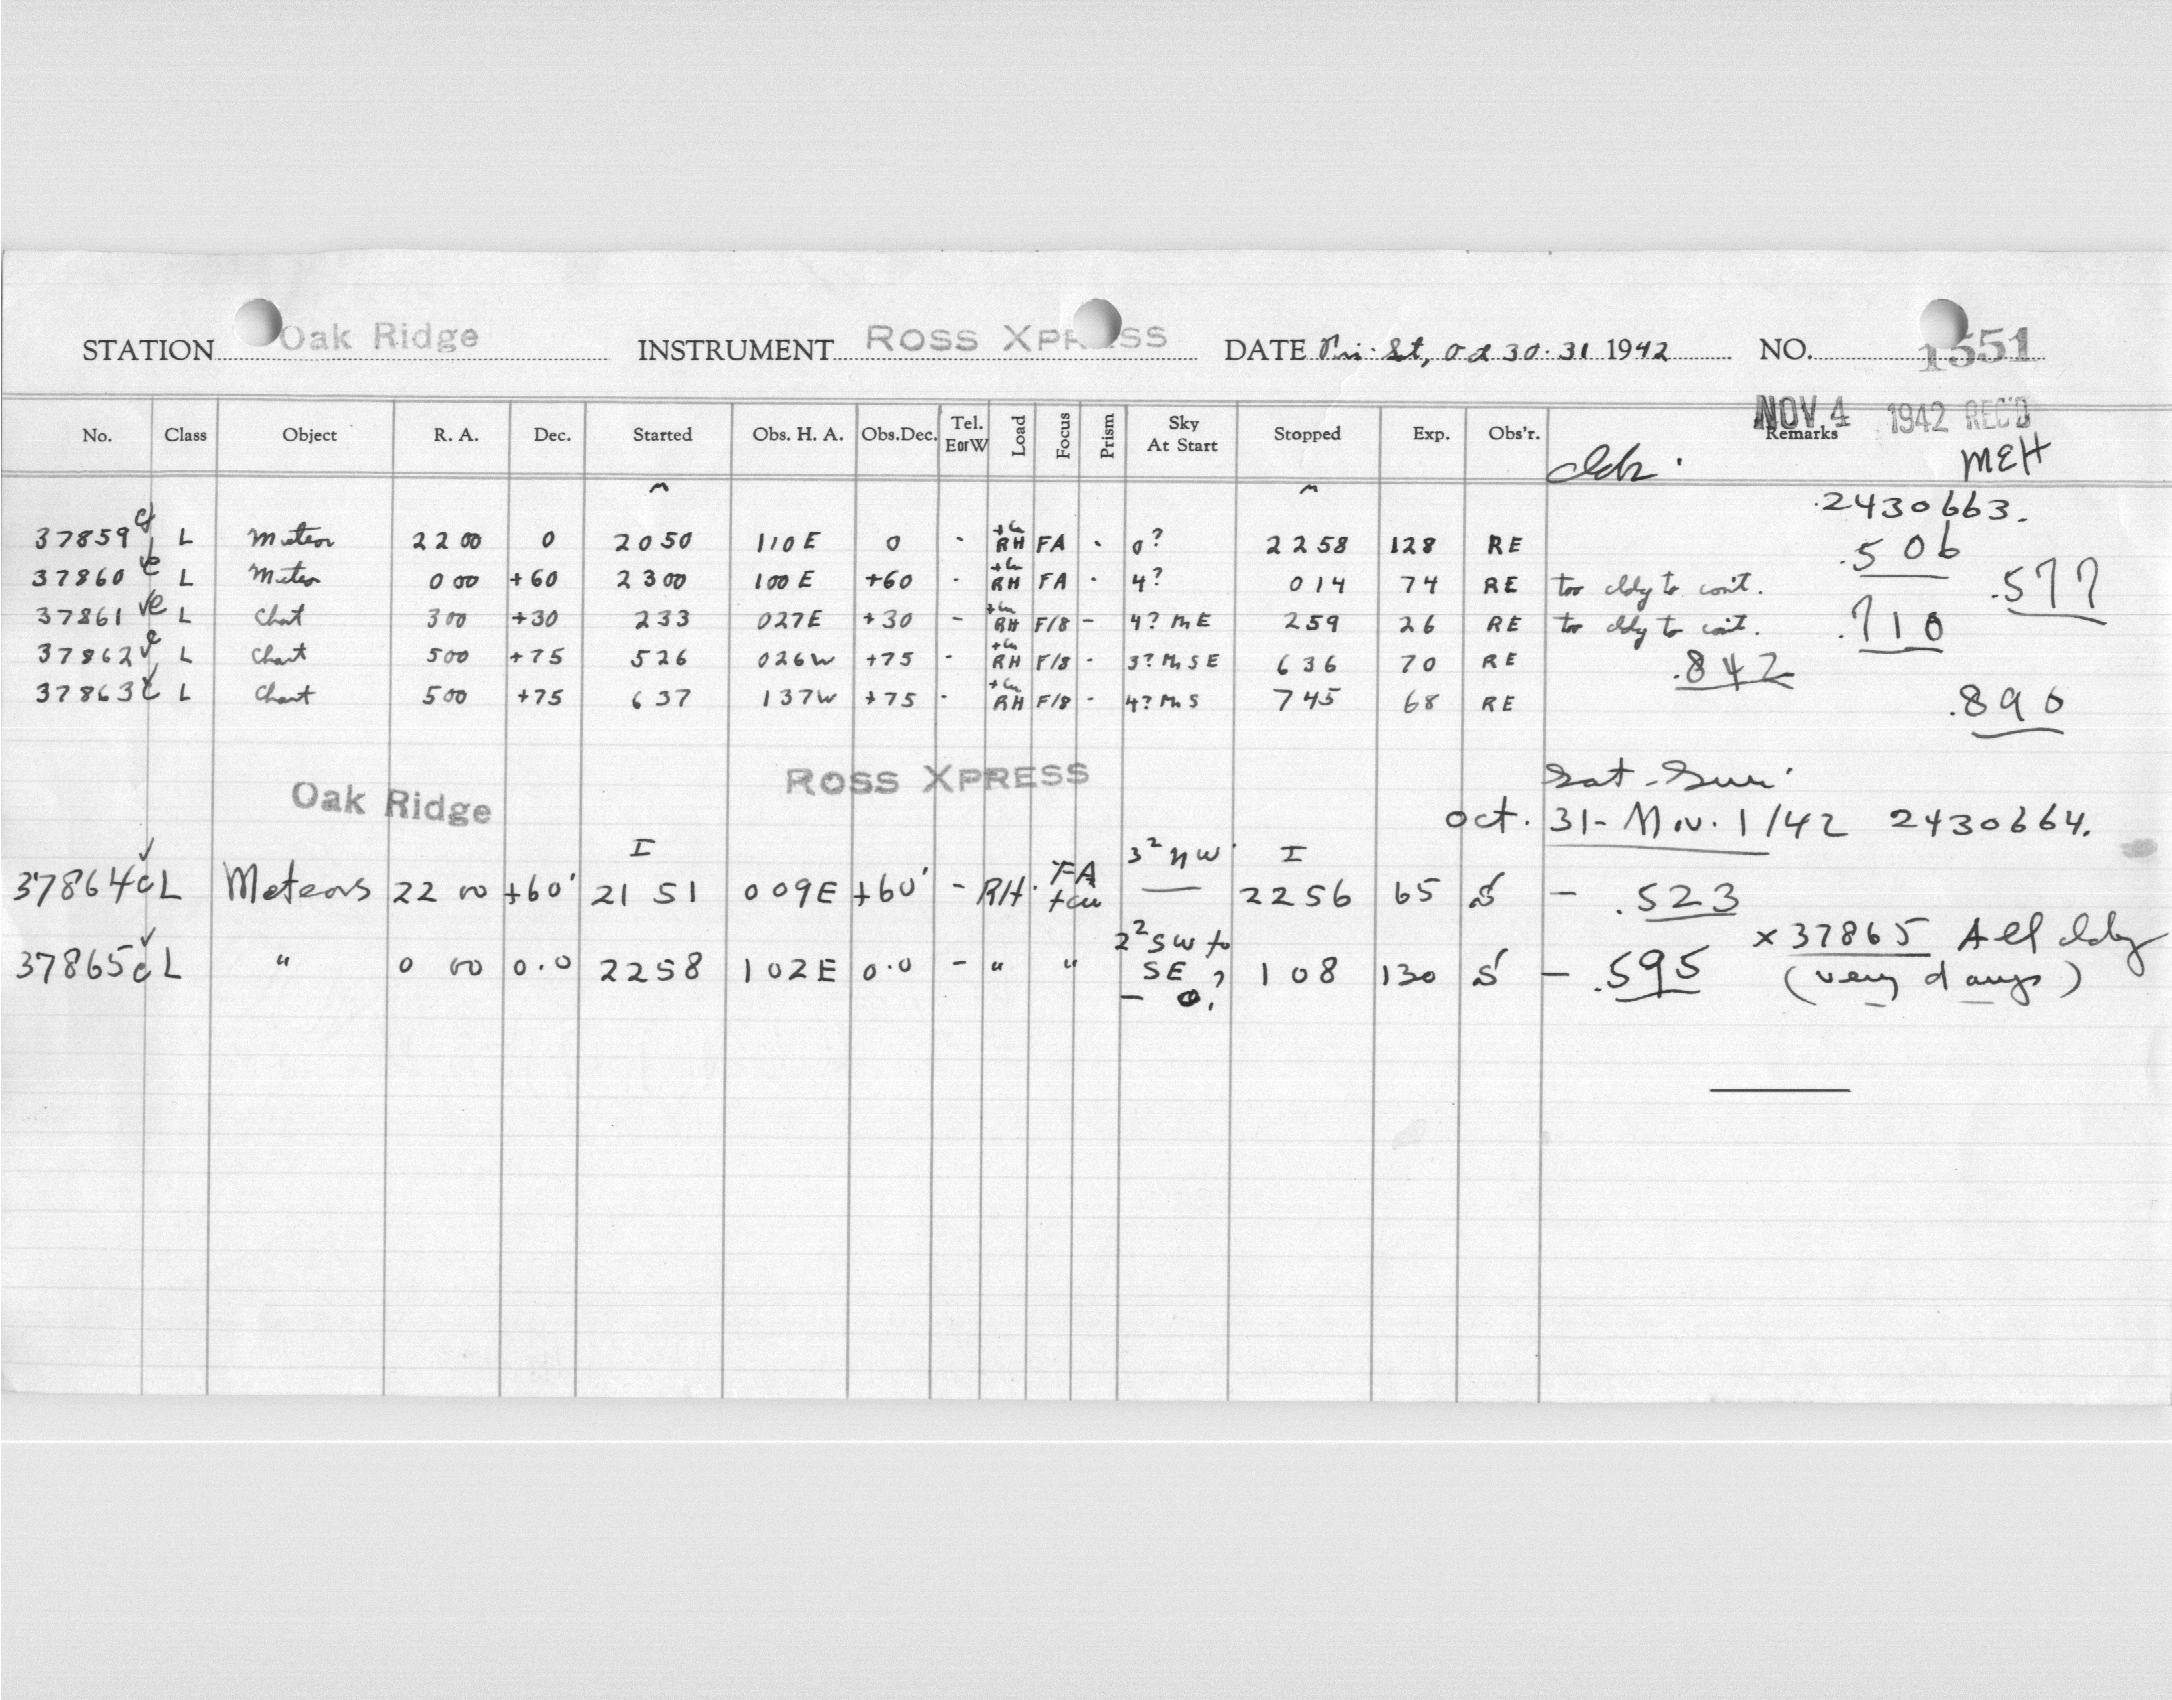 STATION Oak Ridge INSTRUMENT ROSS XPRESS DATE Fri-Sat, Oct 30-31 1942 NO. 1551
NOV 4 1942 REC'D
No. Class Object R. A. Dec. Started Obs. H. A. Obs.Dec. Tel. E or W Load Focus Prism Sky At Start Stopped Exp. Obs'r. Remarks
MEH
2430663.
37859 L Meteor 22 00 0 20 50 1 10 E 0 - +Cu RH FA - 0? 22 58 128 RE .506
37860 L Meteor 0 00 +60 23 00 1 00 E +60 - +Cu RH FA - 4? 0 14 74 RE too cldy to cont. .577
37861 L Chart 3 00 +30 2 33 0 27 E +30 - +Cu RH F/8 - 4? M E 2 59 26 RE too cldy to cont. .710
37862 L Chart 5 00 +75 5 26 0 26 W +75 - +Cu RH F/8 - 3? M SE 6 36 70 RE .842
37863 L Chart 5 00 +75 6 37 1 37 W +75 - +Cu RH F/8 - 4? M S 7 45 68 RE .890
Oak Ridge ROSS XPRESS
Sat-Sun
Oct. 31-Nov. 1/42 2430664.
37864 c L Meteors 22 00 +60 21 51 0 09 E +60 - RH FA +cu 3² NW 22 56 65 S - .523
37865 c L " 0 00 0.0 22 58 1 02 E 0.0 - " " 2² SW to SE - 0? 1 08 130 S - .595
x 37865 All cldy
(very